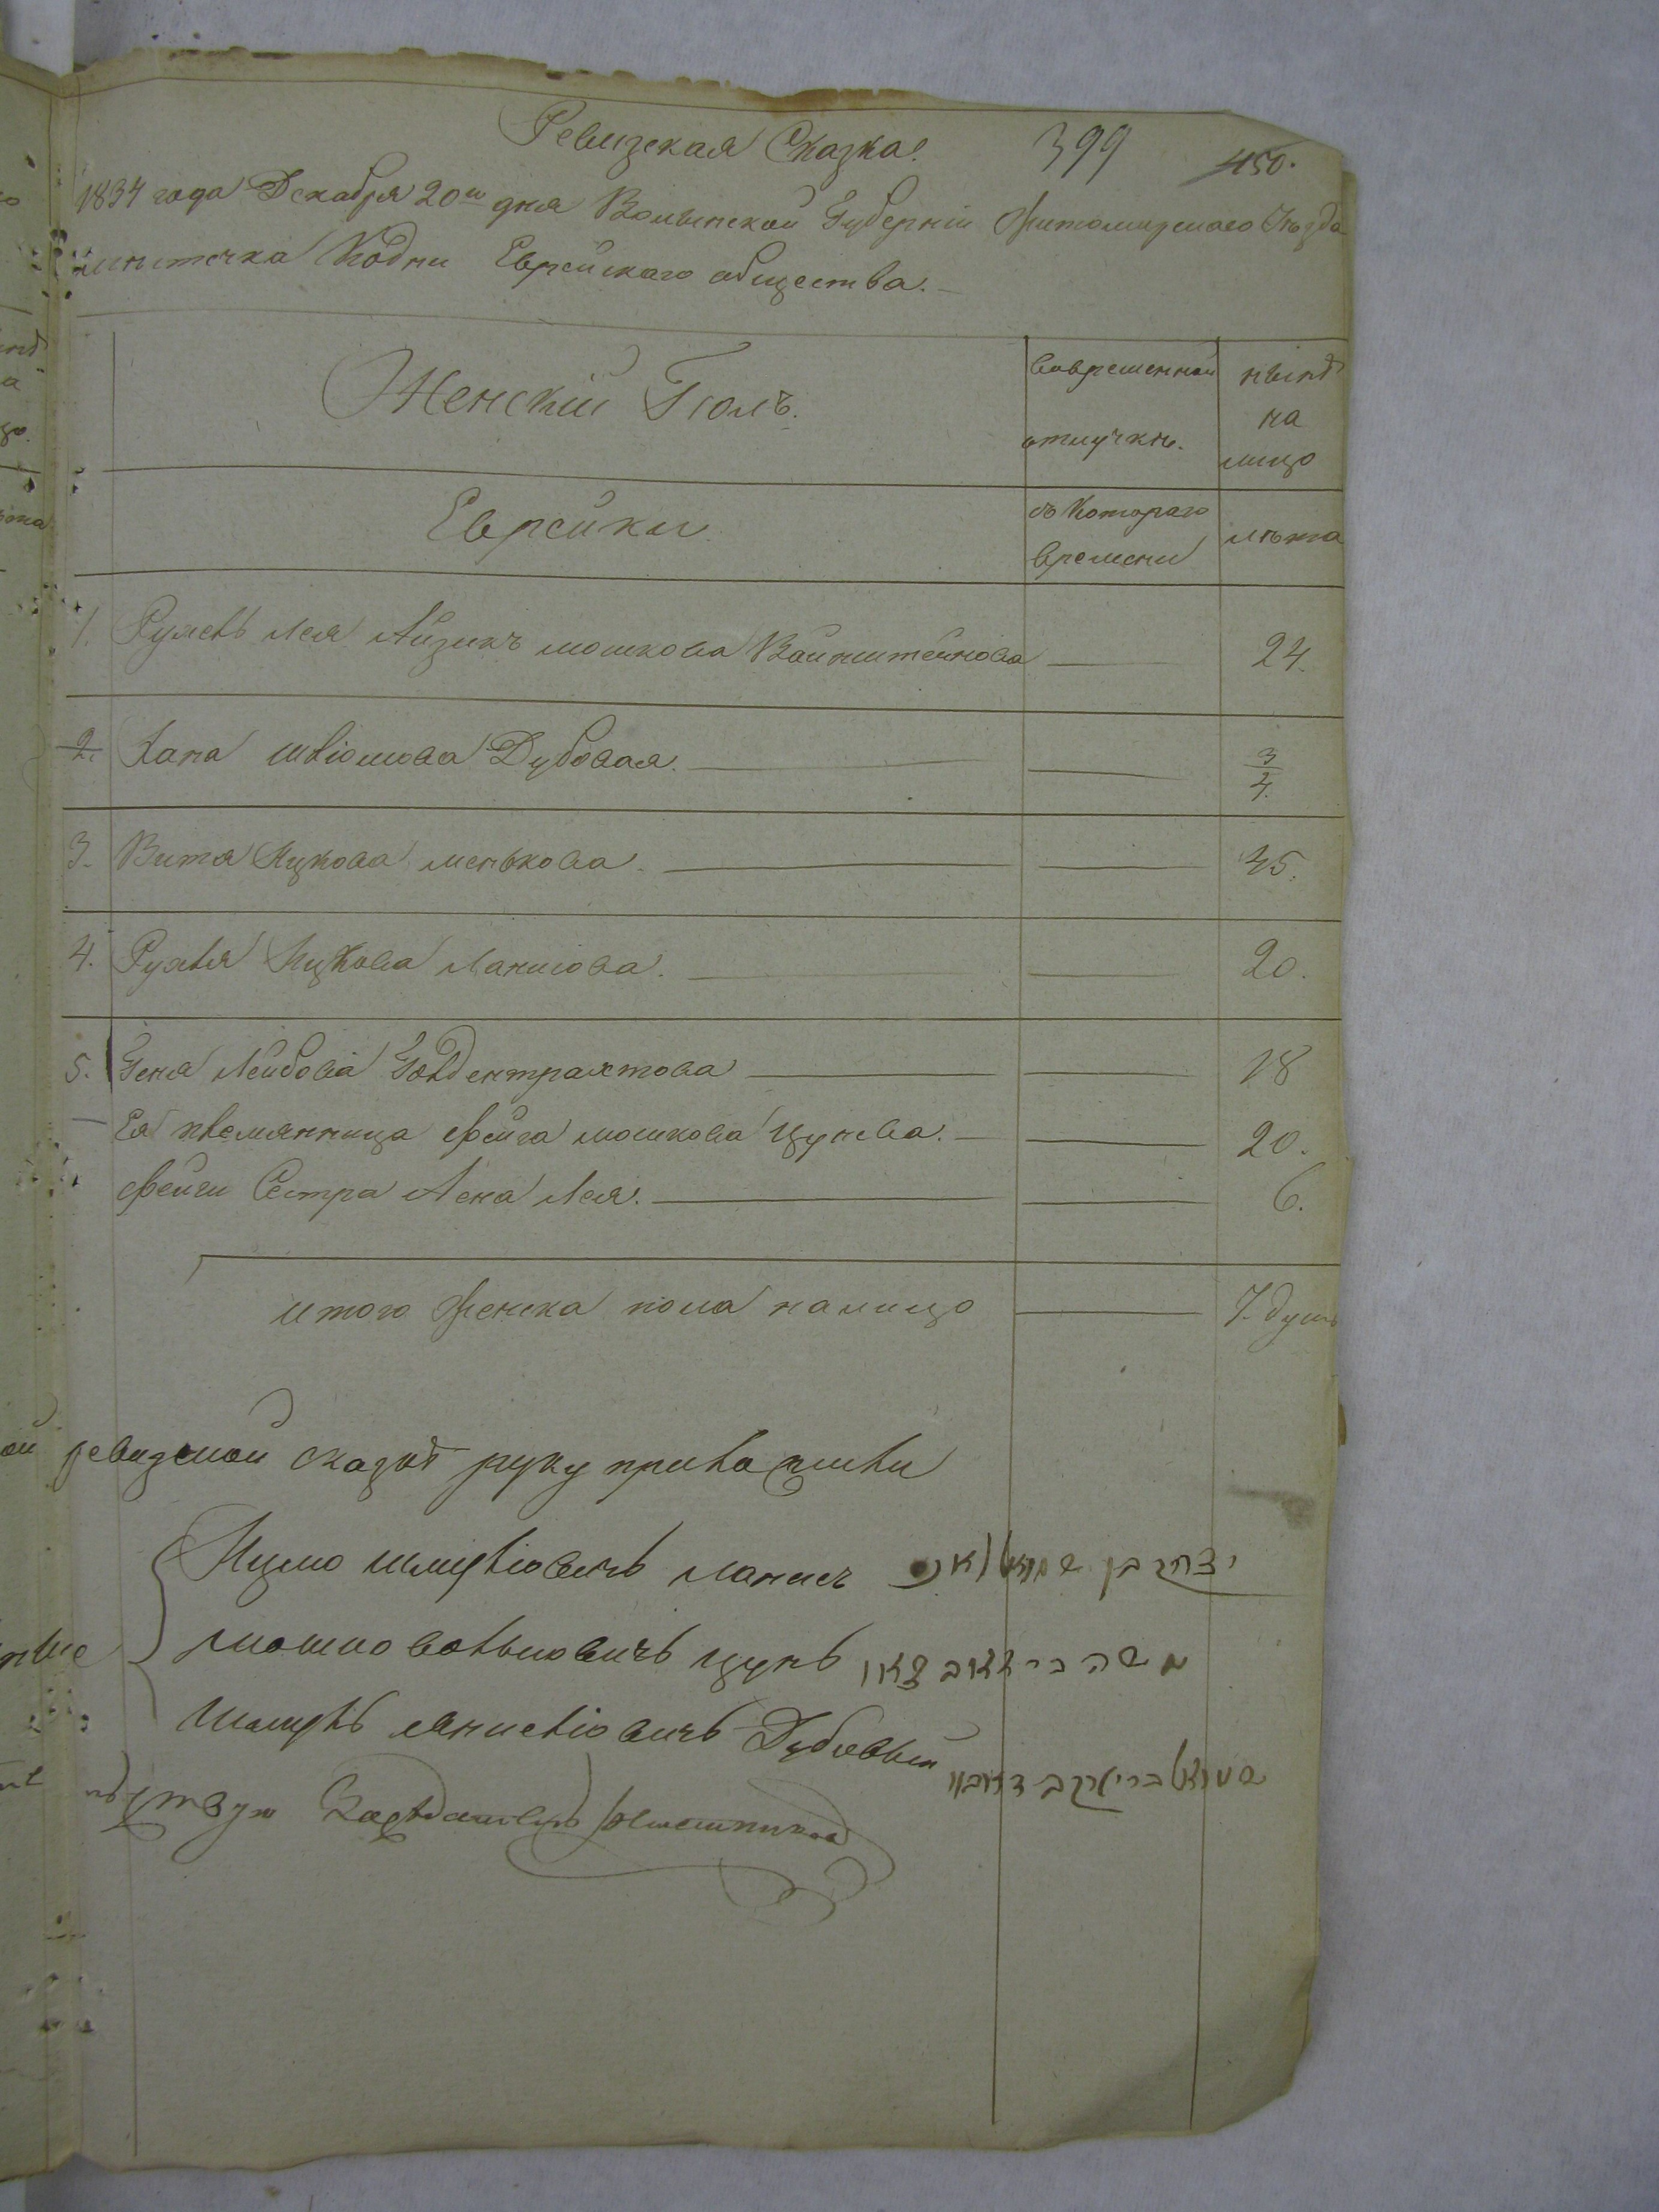 Ревизская Сказка.
399
450.
1834 года Декабря 20го дня Волынской Губерніи Житомирскаго Уѣзда
мѣстечка Кодни Еврейскаго общества.
Женскій Полъ.
вовременной отлучкѣ.
нынѣ на лицо
Еврейки
съ котораго времени
лѣта
1. Рухель Лея Айзикъ мошкова Вайнштейнова 24.
2. Хана Дубовая. 3/4.
3. Витя Ицкова менькова. 45.
4. Рухля Ицкова Ланисова. 20.
5. Геня Лейбова Голдентрахтова 18
Ея племянница Фейга мошкова Цунева. 20.
Фейги Сестра Лея. 6.
итого женска пола налицо 7. душъ
ревизской сказкѣ руку приложили
Ицко Шмулiовичъ יצחק בן שמואל
мошко Волковичъ цунъ משה
Шмуль Дубовый שמואל